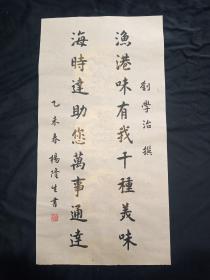 劉學治 撰
漁港味有我千種美味
海時達助您萬事通達
乙未春楊隆生書